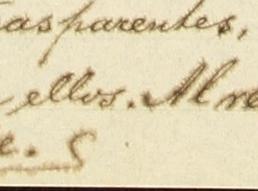 trasparentes,
ellos. Al re
e.